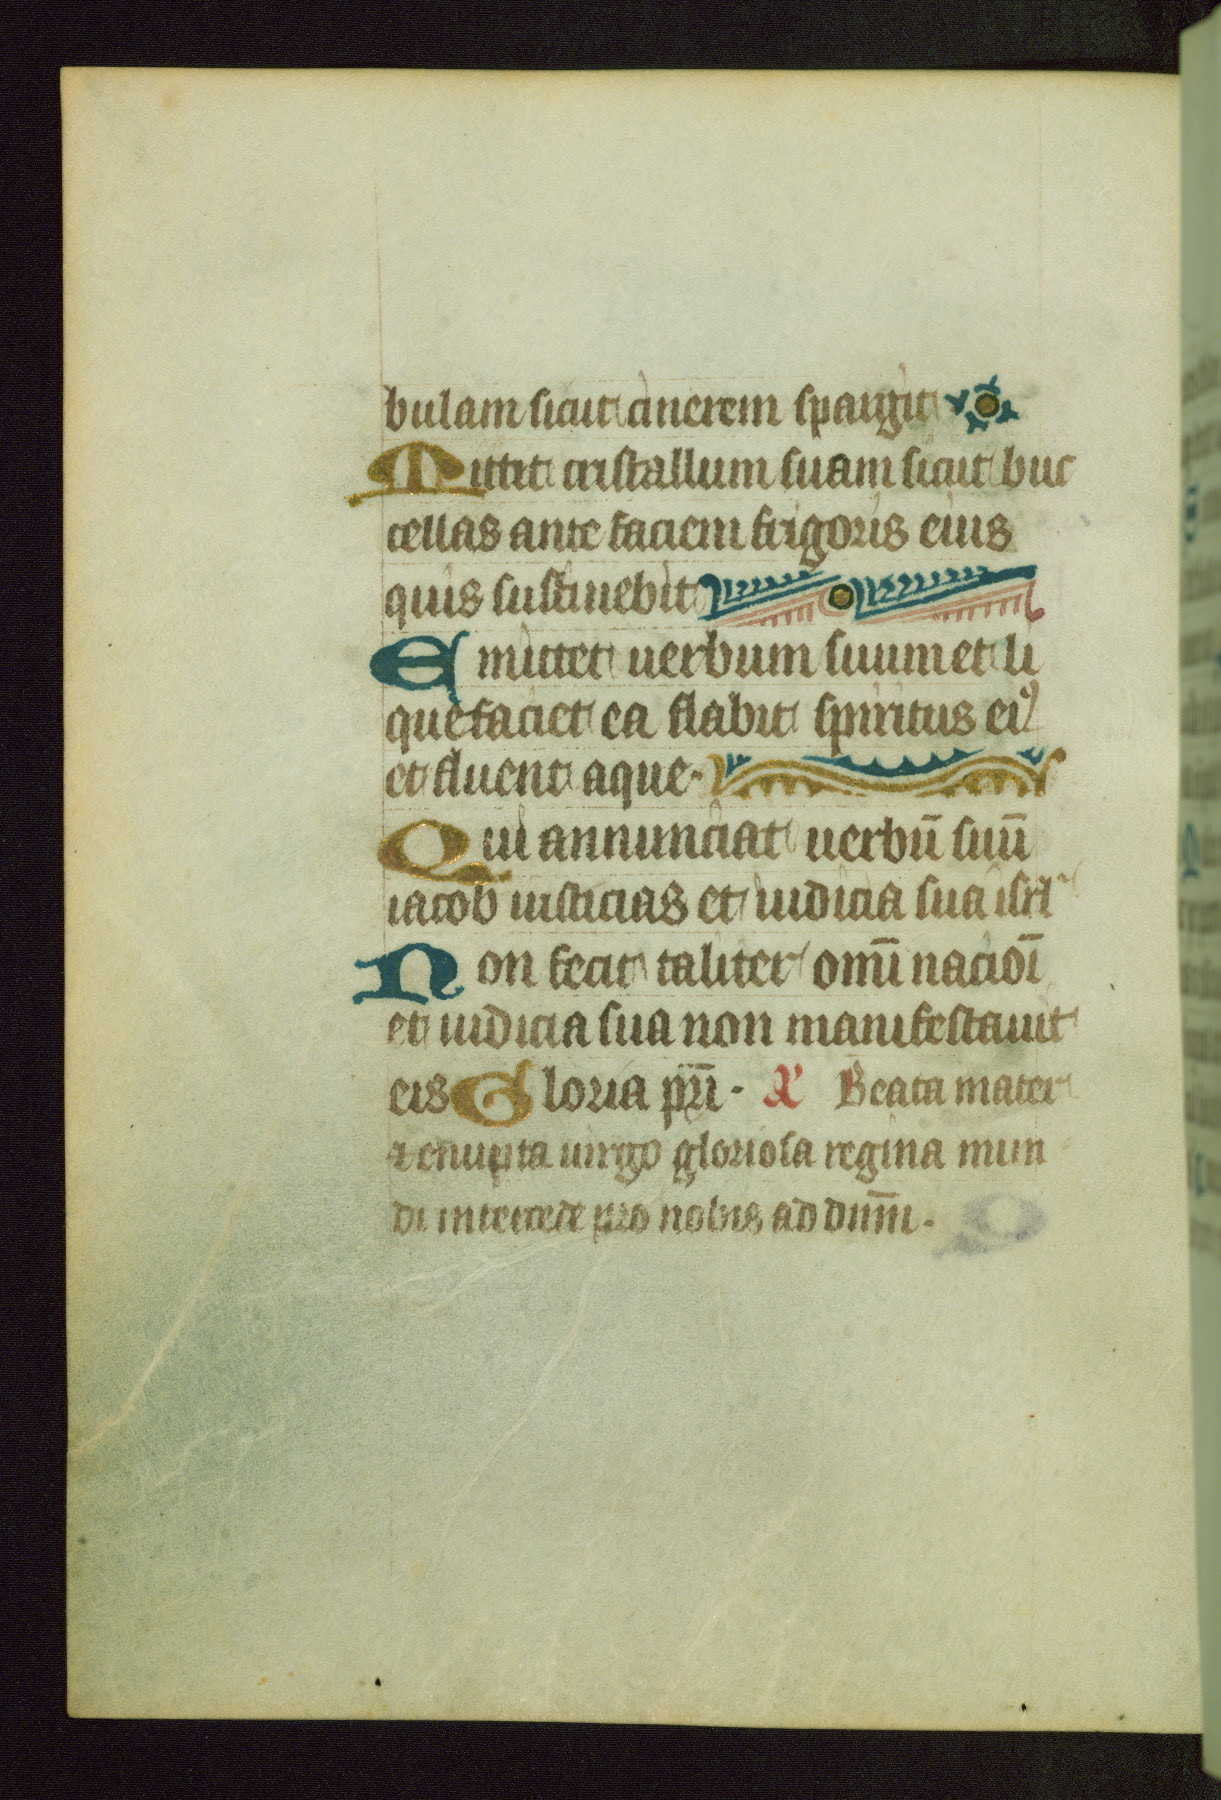 bulam sicut cinerem spargit
Mittit cristallum suam sicut buc
cellas ante faciem frigoris eius
quis sustinebit
Emittet uerbum suum et li
quefaciet ea flabit spiritus ei⁹
et fluent aque.
Qui annunciat uerbū suū
iacob iusticias et iudicia sua isrl
Non fecit taliter omī nacioī
et iudicia sua non manifestauit
eis Gloria pr̄i. Beata mater
⁊ enupta uirgo gloriosa regina mun
di intercede pro nobis ad dnm̄.